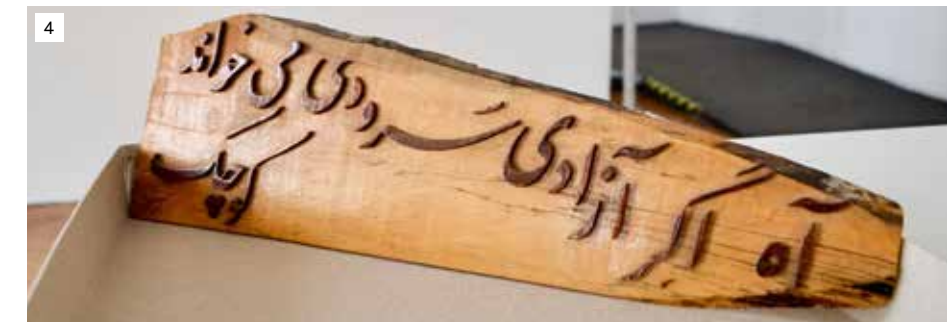 4
آه اگر آزادی سَرودی می خواند
کوچک